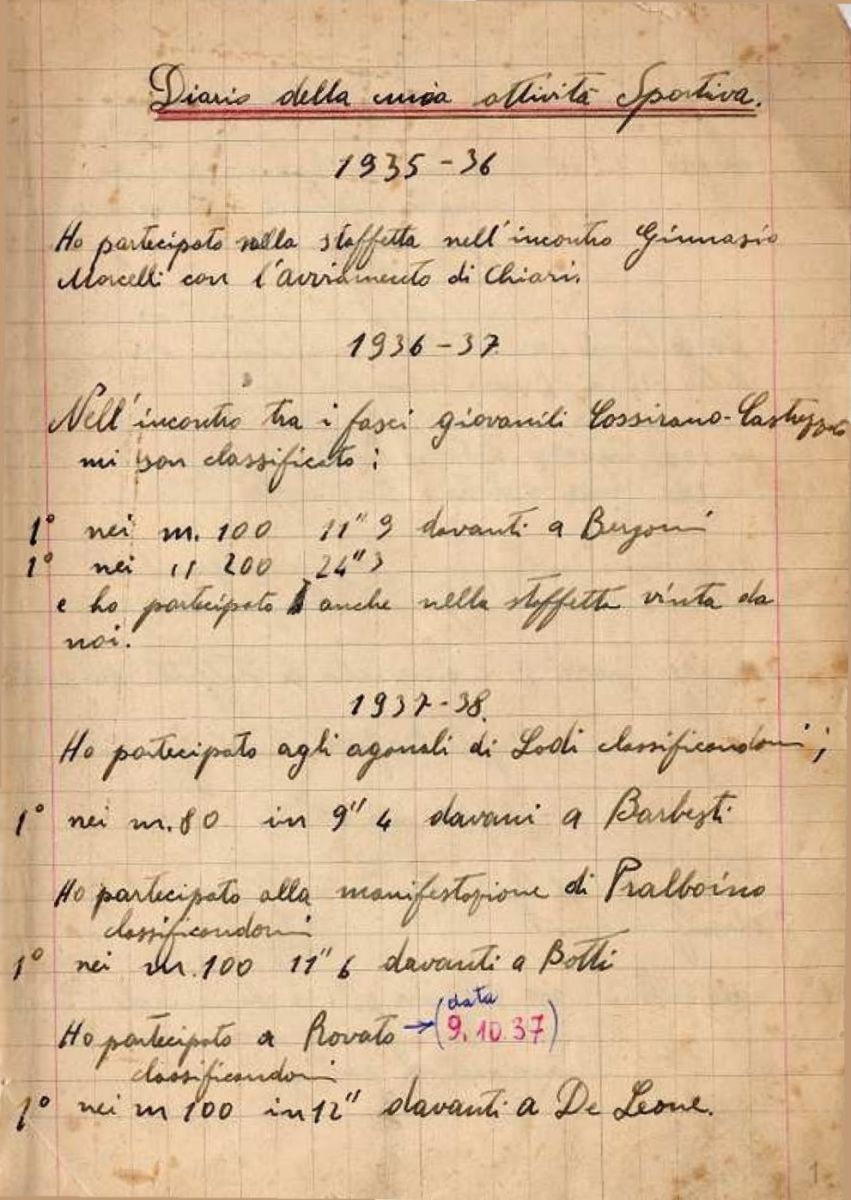 Diario della mia attività Sportiva.
1935-36
Ho partecipato nella staffetta nell'incontro Ginnasio
Morcelli con l'avviamento di Chiari.
1936-37
Nell'incontro tra i fasci giovanili Cossirano-Castrezzato
mi son classificato:
1° nei m. 100 11"9 davanti a Bergomi
1° nei " 200 24"3
e ho partecipato anche nella staffetta vinta da
noi.
1937-38.
Ho partecipato agli agonali di Lodi classificandomi;
1° nei m. 80 in 9"4 davani a Barbesti
Ho partecipato alla manifestazione di Pralboino
classificandomi
1° nei m. 100 11"6 davanti a Botti
(data
Ho partecipato a Rovato → 9.10.37)
classificandomi
1° nei m 100 in 12" davanti a De Leone.
1